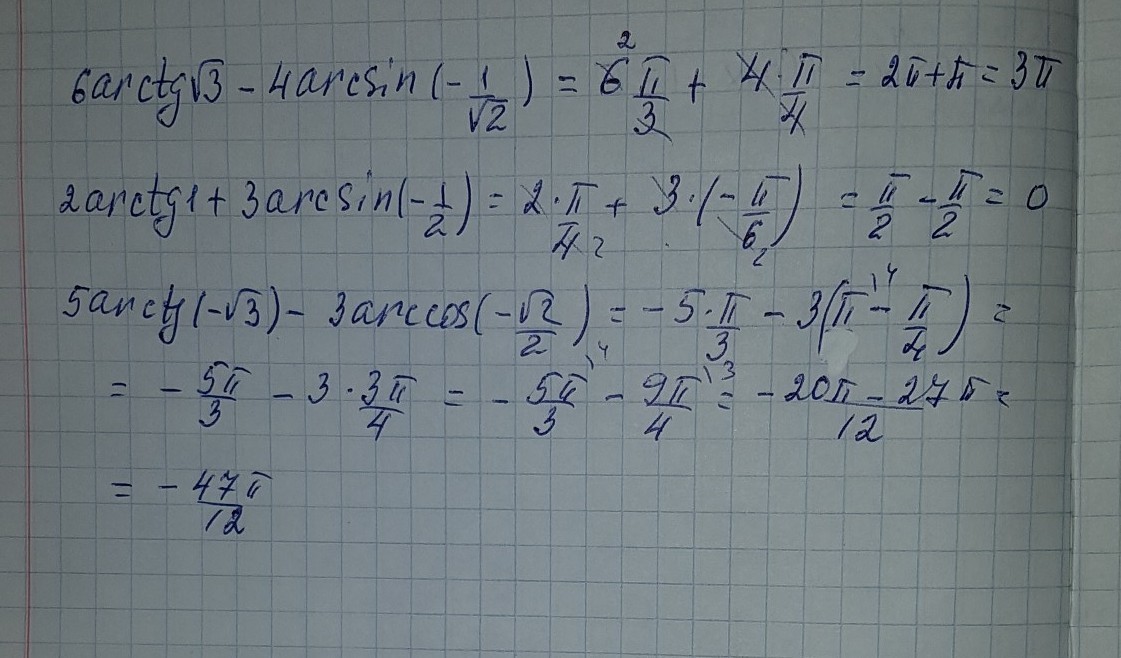 6arctg√3 - 4arcsin(-1/√2) = 6 2 π/3 + 4·π/4 = 2π+π = 3π
2arctg1 + 3arcsin(-1/2) = 2·π/4 2 + 3·(-π/6 2) = π/2 - π/2 = 0
5arctg(-√3) - 3arccos(-√2/2) = -5·π/3 - 3(π\4 - π/4) =
= -5π/3 - 3·3π/4 = -5π/3\4 - 9π/4\3 = -20π - 27π/12 =
= -47π/12